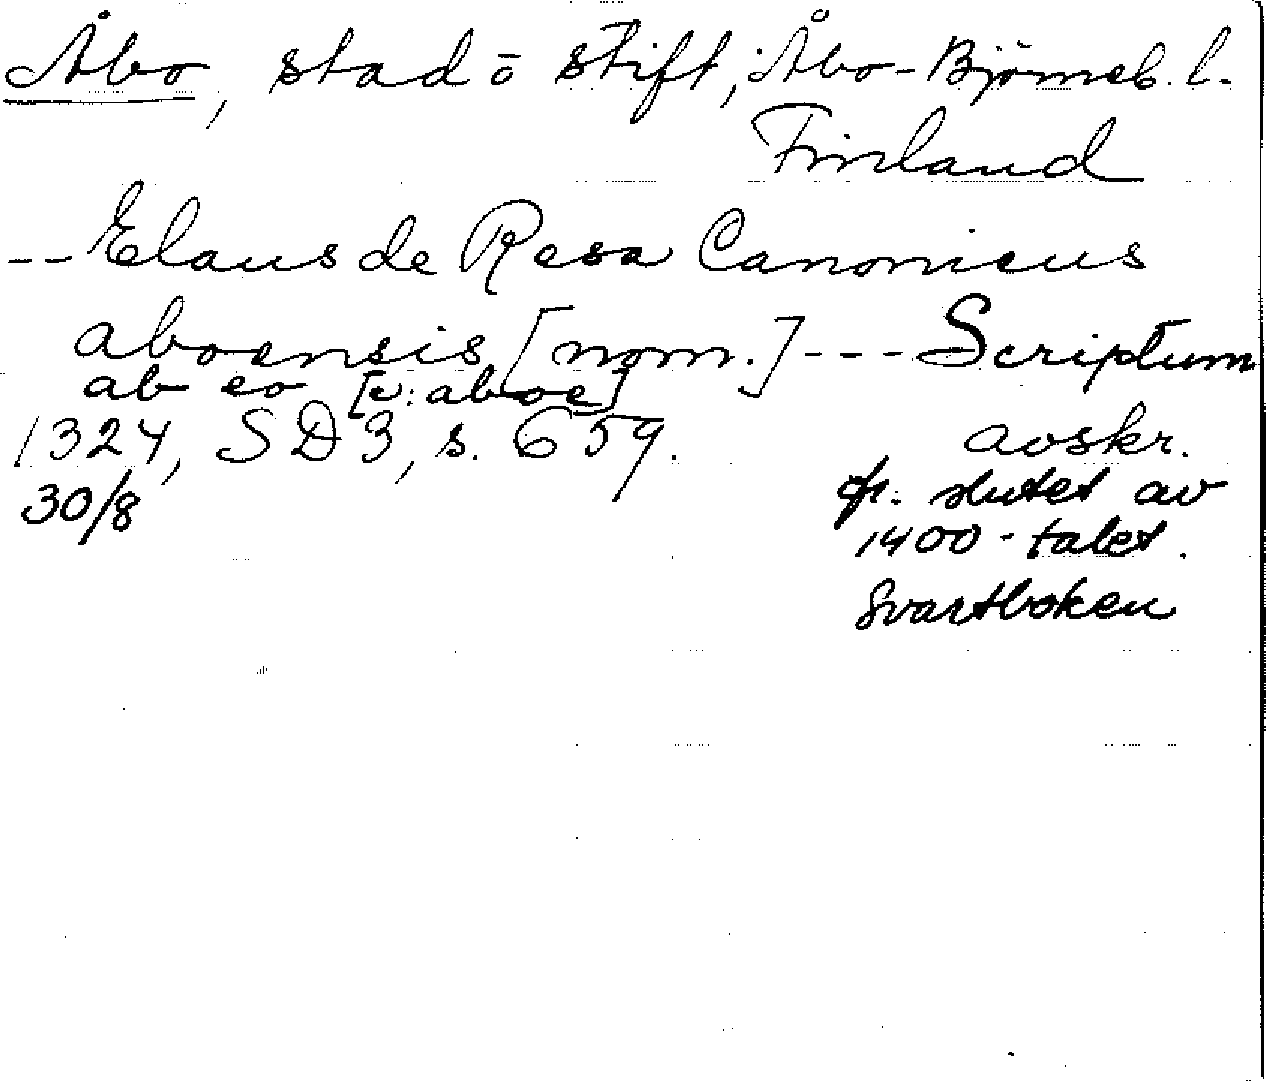 Åbo, stad o stift, Åbo-Björneb. l.
Finland
-- Elaus de Resa Canonicus
aboensis [nom.] --- Scriptum
ab eo [c: aboe]
1324, SD3, s. 659. avskr.
30/8 fr. slutet av
1400-talet.
Svartboken